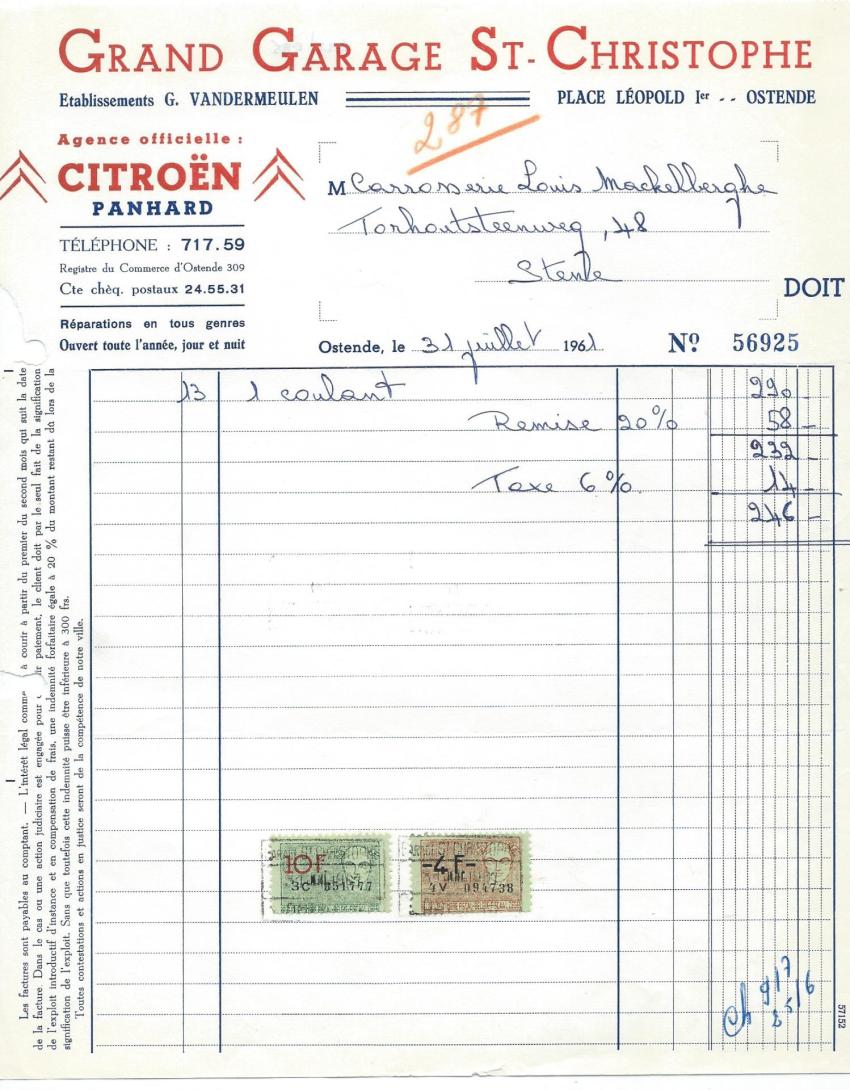 GRAND GARAGE ST-CHRISTOPHE
Etablissements G. VANDERMEULEN
PLACE LÉOPOLD Ier -- OSTENDE
287
Agence officielle :
CITROËN
PANHARD
TÉLÉPHONE : 717.59
Registre du Commerce d'Ostende 309
Cte chèq. postaux 24.55.31
Réparations en tous genres
Ouvert toute l'année, jour et nuit
M Carrosserie Louis Mackelberghe
Torhoutsteenweg, 48
Stene
DOIT
Ostende, le 31 juillet 1961
No 56925
13 1 coulant 290
Remise 20% 58 -
232 -
Taxe 6% 14 -
246 -
10F
3C 851777
-4F-
4V 094738
57152
Les factures sont payables au comptant. — L'intérêt légal comme à courir à partir du premier du second mois qui suit la date
de la facture. Dans le cas ou une action judiciaire est engagée pour paiement, le client doit par le seul fait de la signification
de l'exploit introductif d'instance et en compensation de frais, une indemnité forfaitaire égale à 20 % du montant restant dû lors de la
signification de l'exploit. Sans que toutefois cette indemnité puisse être inférieure à 300 frs.
Toutes contestations et actions en justice seront de la compétence de notre ville.